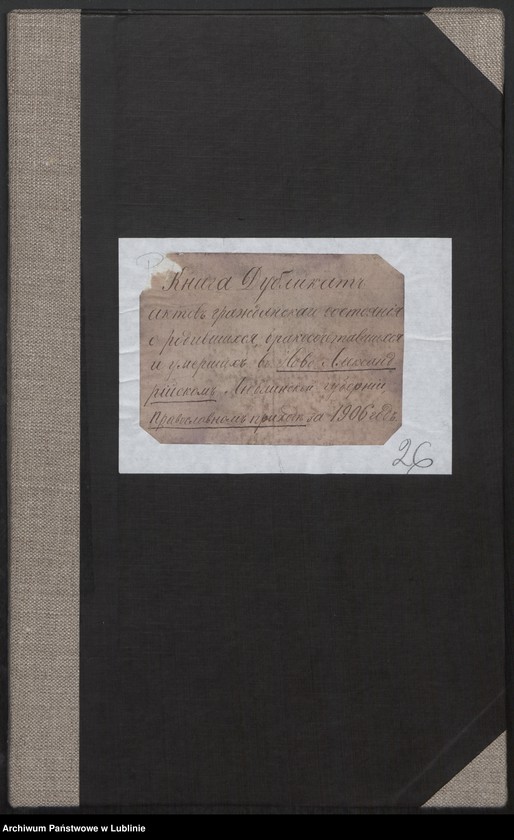 Книга Дубликатъ
актовъ гражданскаго состоянія
о родившихся, бракосочетавшихся
и умершихъ въ Ново-Александ
рійскомъ Люблинской губерніи
Православномъ приходѣ за 1906 годъ
26
Archiwum Państwowe w Lublinie